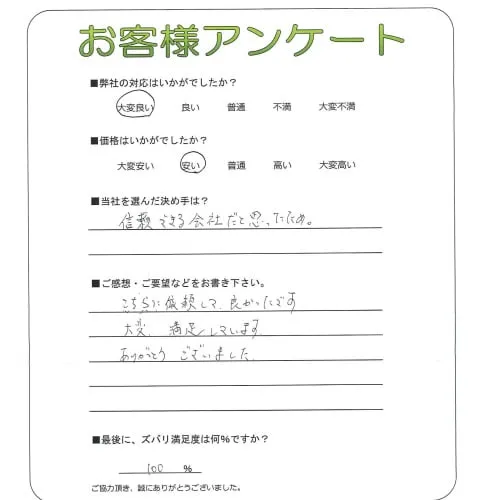 お客様アンケート
■弊社の対応はいかがでしたか？
大変良い 良い 普通 不満 大変不満
■価格はいかがでしたか？
大変安い 安い 普通 高い 大変高い
■当社を選んだ決め手は？
信頼できる会社だと思ったため。
■ご感想・ご要望などをお書き下さい。
こちらに依頼して、良かったです
大変、満足しています
ありがとうございました。
■最後に、ズバリ満足度は何%ですか？
100 %
ご協力頂き、誠にありがとうございました。